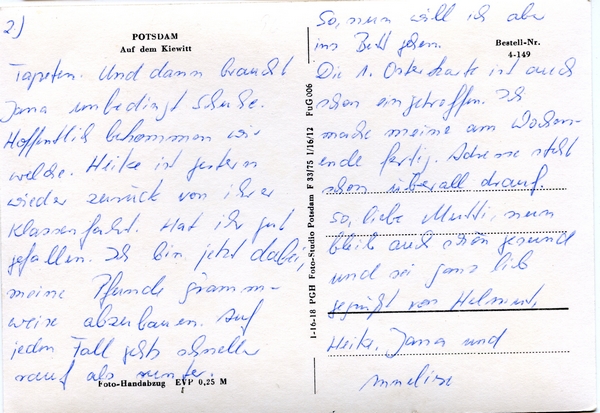 2)
POTSDAM
Auf dem Kiewitt
Tapeten. Und dann braucht
Jana unbedingt Schuhe.
Hoffentlich bekommen wir
welche. Heike ist gestern
wieder zurück von ihrer
Klassenfahrt. Hat ihr gut
gefallen. Ich bin jetzt dabei,
meine Pfunde gramm-
weise abzubauen. Auf
jeden Fall gehts schneller
rauf als runter.
Foto-Handabzug EVP 0,25 M
1-16-18 PGH Foto-Studio Potsdam F 33/75 1/16/12 FuG 006
Bestell-Nr.
4-149
So, nun will ich aber
ins Bett gehen.
Die 1. Osterkarte ist auch
schon eingetroffen. Ich
mache meine am Wochen-
ende fertig. Adresse steht
schon überall drauf.
So, liebe Mutti, nun
bleib auch schön gesund
und sei ganz lieb
gegrüßt von Helmut,
Heike, Jana und
Annelise